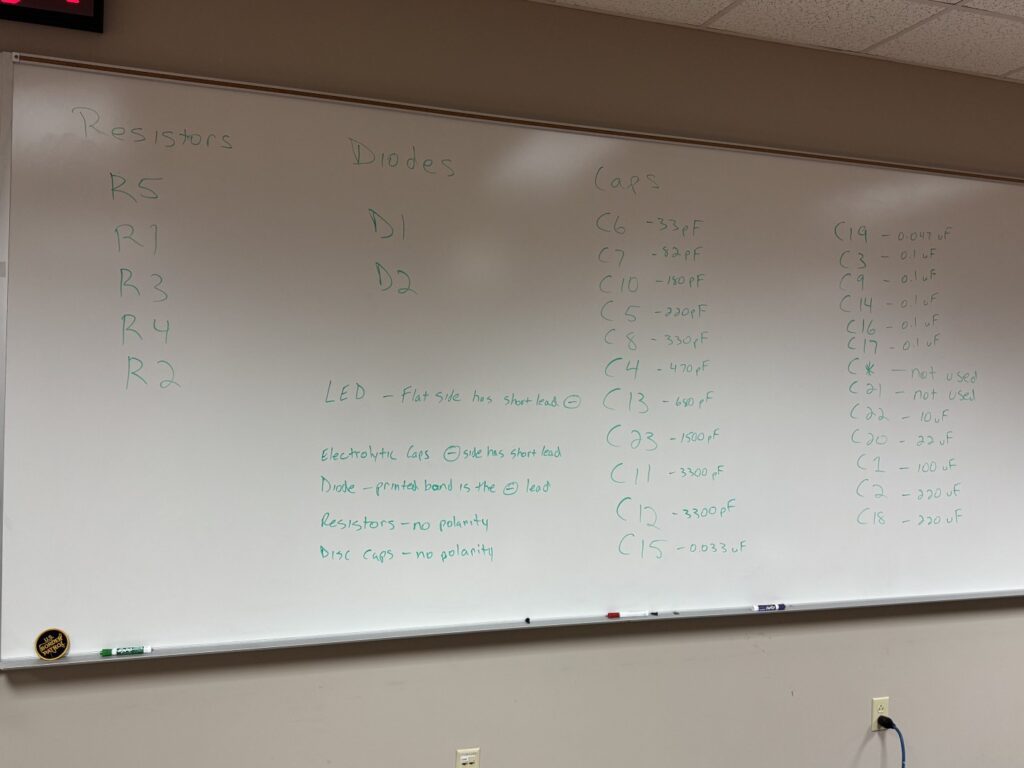 Resistors
R5
R1
R3
R4
R2
Diodes
D1
D2
LED - Flat side has short lead ⊖
Electrolytic Caps ⊖ side has short lead
Diode - printed band is the ⊖ lead
Resistors - no polarity
Disc caps - no polarity
Caps
C6 - 33pF
C7 - 82pF
C10 - 180pF
C5 - 220pF
C8 - 330pF
C4 - 470pF
C13 - 680pF
C23 - 1500pF
C11 - 3300pF
C12 - 3300pF
C15 - 0.033uF
C19 - 0.047uF
C3 - 0.1uF
C9 - 0.1uF
C14 - 0.1uF
C16 - 0.1uF
C17 - 0.1uF
C* - not used
C21 - not used
C22 - 10uF
C20 - 22uF
C1 - 100uF
C2 - 220uF
C18 - 220uF
U.S.
BORDER
PATROL
EXPO